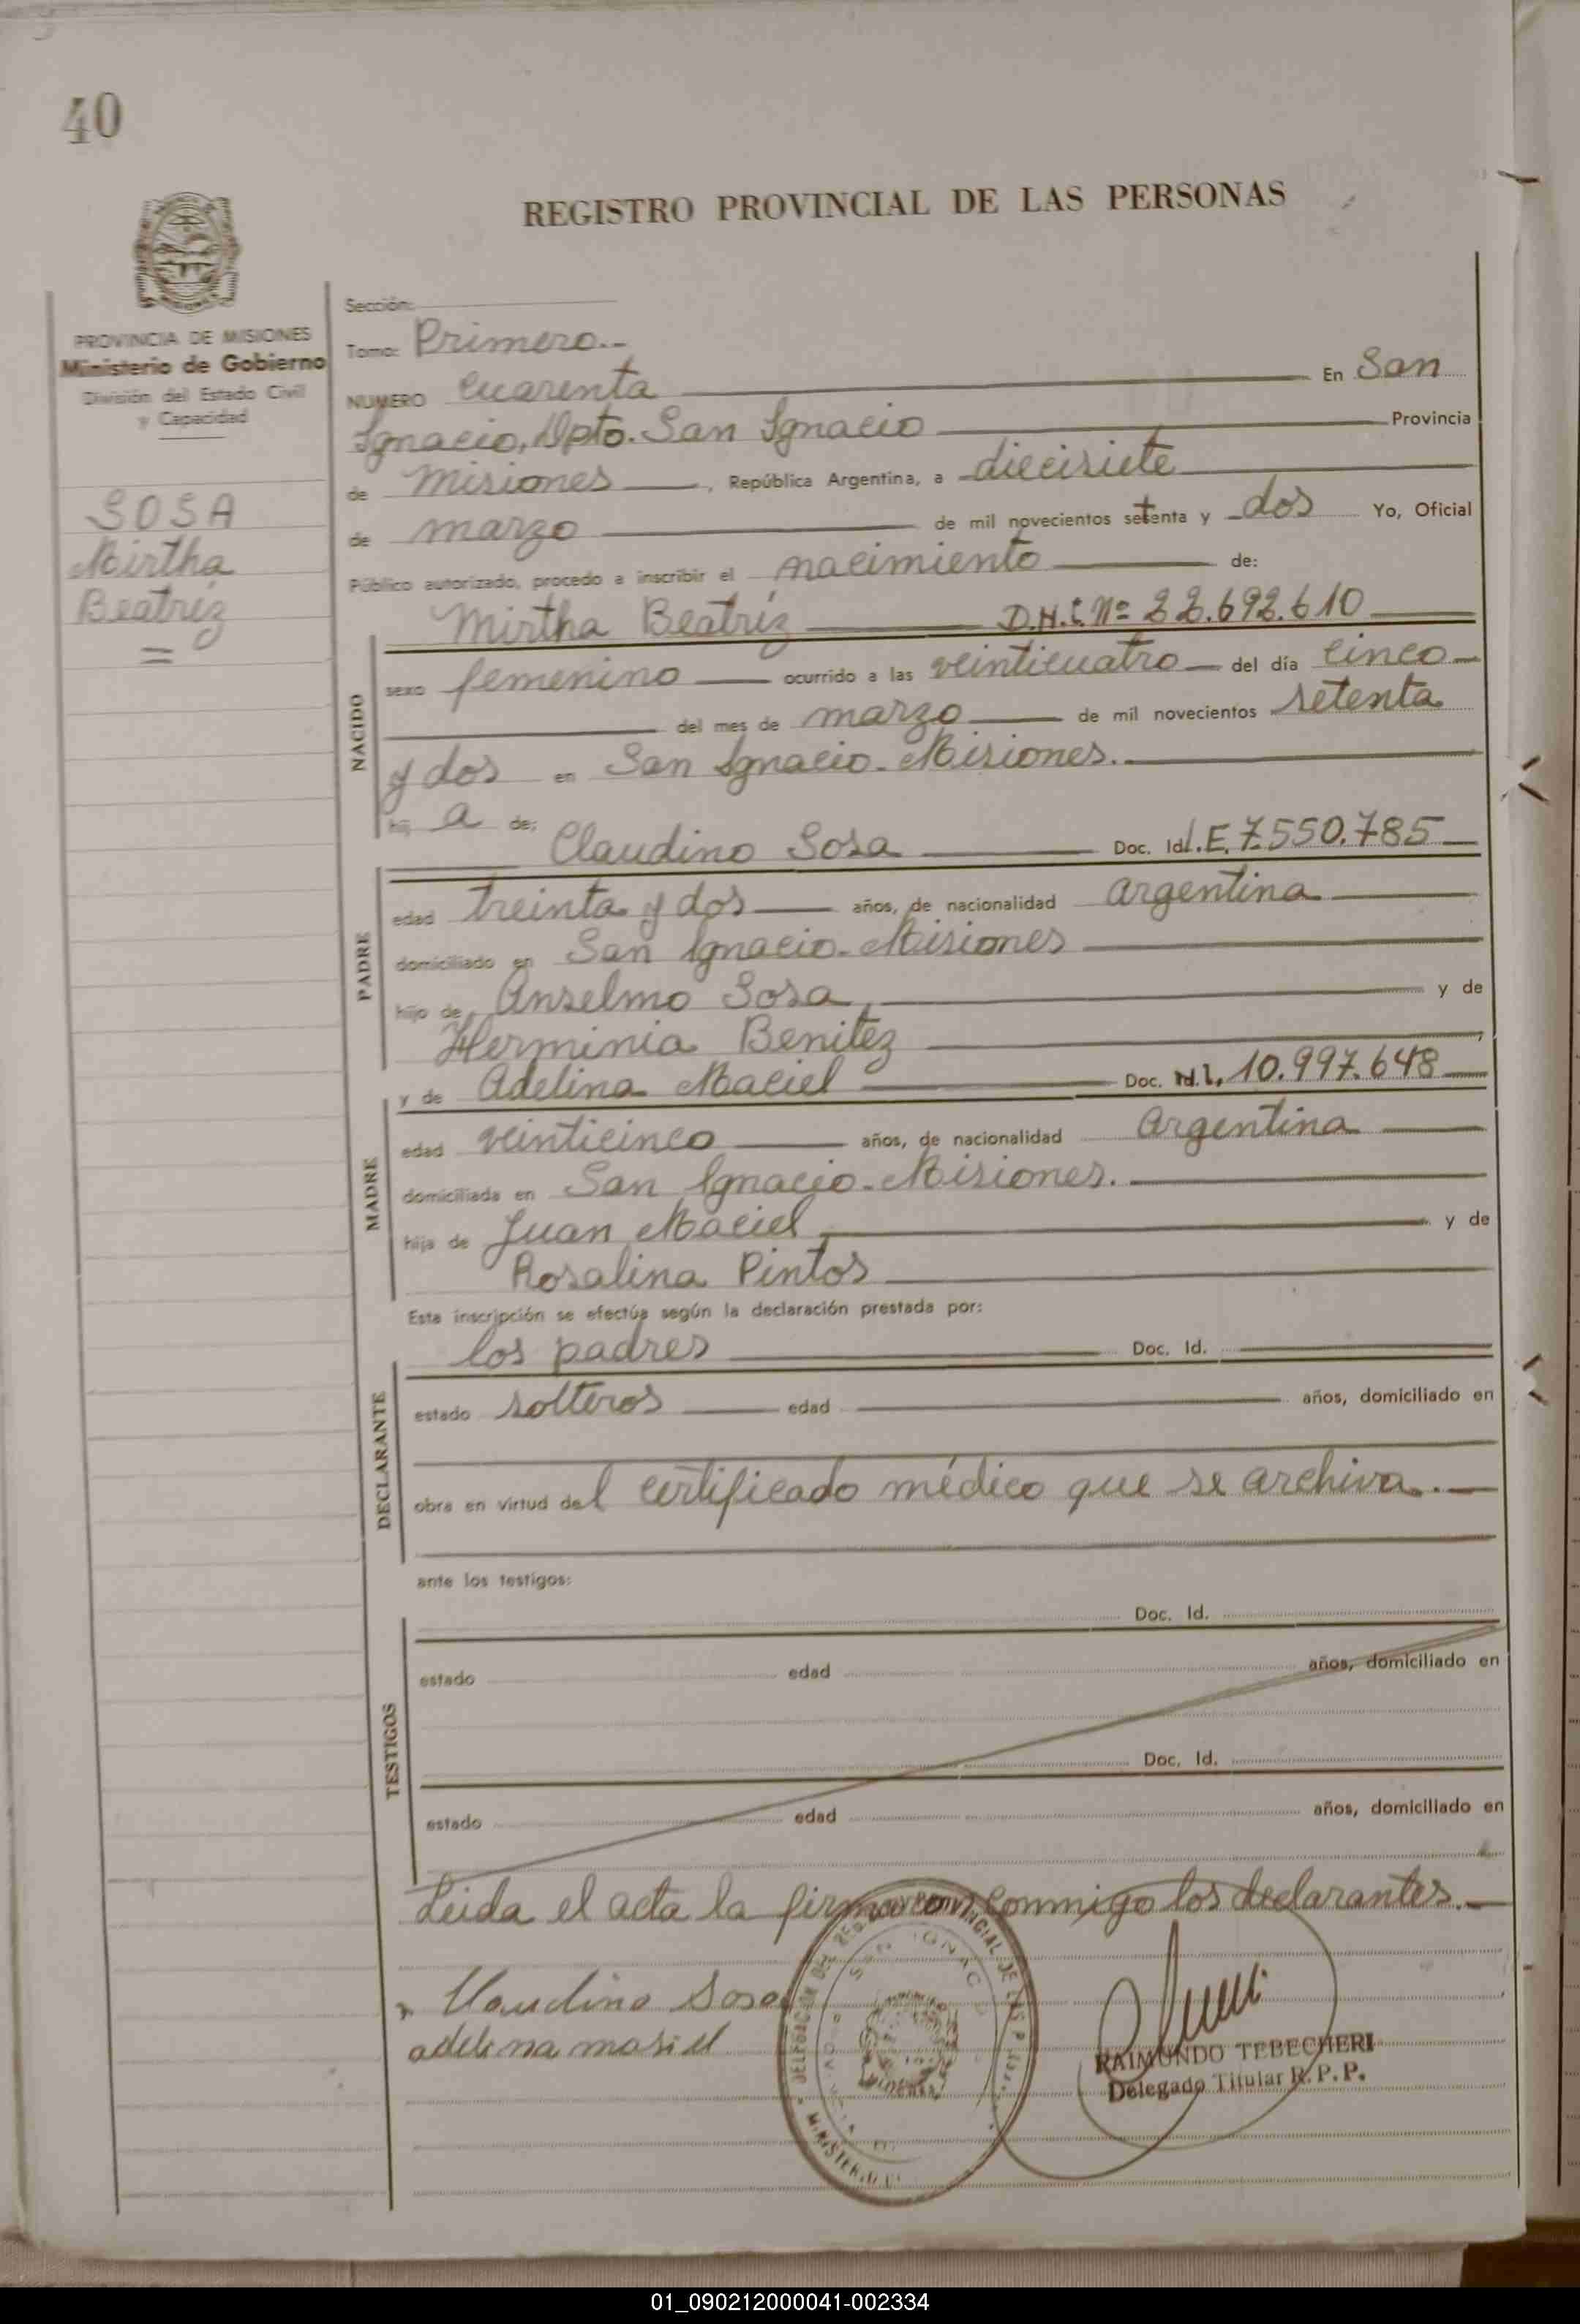 40
REGISTRO PROVINCIAL DE LAS PERSONAS
PROVINCIA DE MISIONES
Ministerio de Gobierno
División del Estado Civil
y Capacidad
SOSA
Mirtha
Beatríz
=
Sección:
Tomo: Primero.-
NUMERO cuarenta En San
Ignacio, Dpto. San Ignacio Provincia
de Misiones, República Argentina, a diecisiete
de marzo de mil novecientos setenta y dos Yo, Oficial
Público autorizado, procedo a inscribir el nacimiento de:
Mirtha Beatríz D.N.I. Nº 22.692.610
NACIDO
sexo femenino ocurrido a las veinticuatro del día cinco
del mes de marzo de mil novecientos setenta
y dos en San Ignacio-Misiones.
hij a de:
Claudino Sosa Doc. Id L.E. 7.550.785
PADRE
edad treinta y dos años, de nacionalidad argentina
domiciliado en San Ignacio-Misiones
hijo de Anselmo Sosa, y de
Herminia Benitez ,
y de Adelina Maciel Doc. Id. 10.997.648
MADRE
edad veinticinco años, de nacionalidad argentina
domiciliada en San Ignacio-Misiones.
hija de Juan Maciel, y de
Rosalina Pintos
Esta inscripción se efectúa según la declaración prestada por:
los padres Doc. Id.
DECLARANTE
estado solteros edad años, domiciliado en
obra en virtud del certificado médico que se archiva.
ante los testigos:
Doc. Id.
TESTIGOS
estado edad años, domiciliado en
Doc. Id.
estado edad años, domiciliado en
Leida el acta la firmaron conmigo los declarantes.
Claudino Sosa
adelina masiel
DELEGACION DEL REG. PROVINCIAL DE LAS P
SAN IGNAC
MINISTERIO
RAIMUNDO TEBECHERI
Delegado Titular R.P.P.
01_090212000041-002334